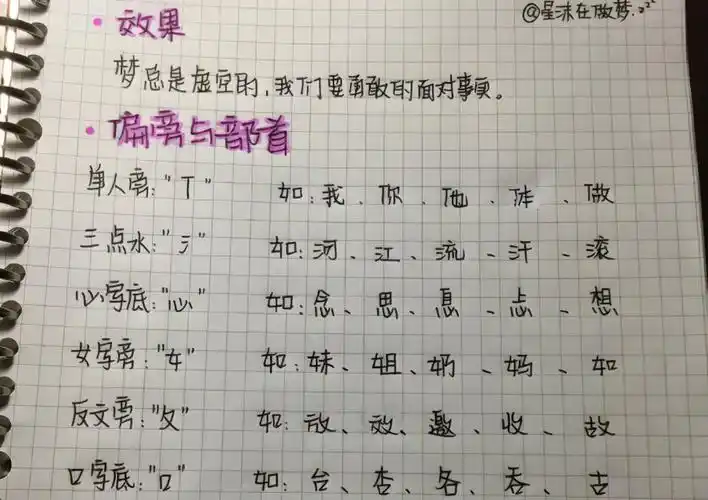 @星沫在做梦.zzz
·效果
梦总是虚空的,我们要勇敢的面对事实。
·偏旁与部首
单人旁:"亻" 如:我、你、他、体、做
三点水:"氵" 如:河、江、流、汗、滚
心字底:"心" 如:念、思、息、怂、想
女字旁:"女" 如:妹、姐、奶、妈、如
反文旁:"攵" 如:放、效、邀、收、故
口字底:"口" 如:台、杏、各、吞、古